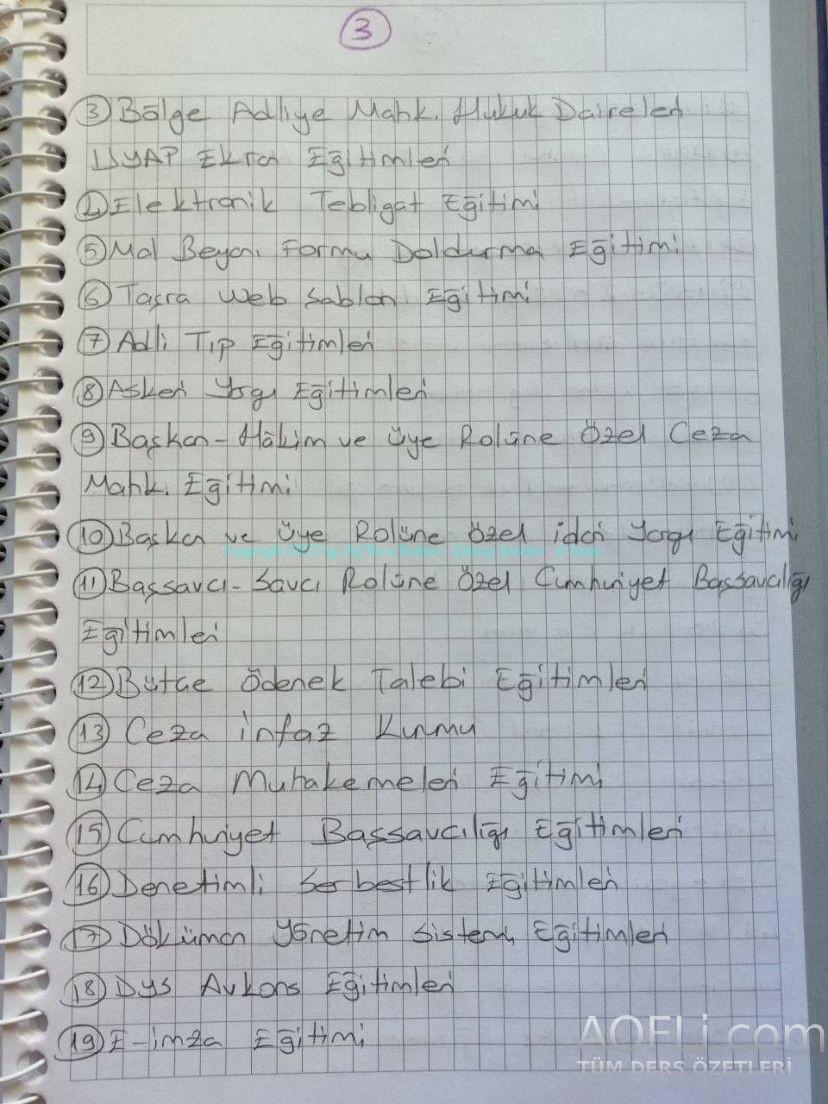 3
③ Bölge Adliye Mahk. Hukuk Daireleri
UYAP Ekran Eğitimleri
④ Elektronik Tebligat Eğitimi
⑤ Mal Beyanı Formu Doldurma Eğitimi
⑥ Taşra Web Sablon Eğitimi
⑦ Adli Tıp Eğitimleri
⑧ Askeri Yargı Eğitimleri
⑨ Başkan-Hâkim ve Üye Rolüne Özel Ceza
Mahk. Eğitimi
⑩ Başkan ve Üye Rolüne Özel idari Yargı Eğitimi
⑪ Başsavcı-Savcı Rolüne Özel Cumhuriyet Başsavcılığı
Eğitimleri
⑫ Bütçe Ödenek Talebi Eğitimleri
⑬ Ceza infaz Kurumu
⑭ Ceza Muhakemeleri Eğitimi
⑮ Cumhuriyet Başsavcılığı Eğitimleri
⑯ Denetimli Serbestlik Eğitimleri
⑰ Döküman Yönetim Sistemi Eğitimleri
⑱ Dys Avkons Eğitimleri
⑲ E-imza Eğitimi
AOFLi.com
TÜM DERS ÖZETLERİ